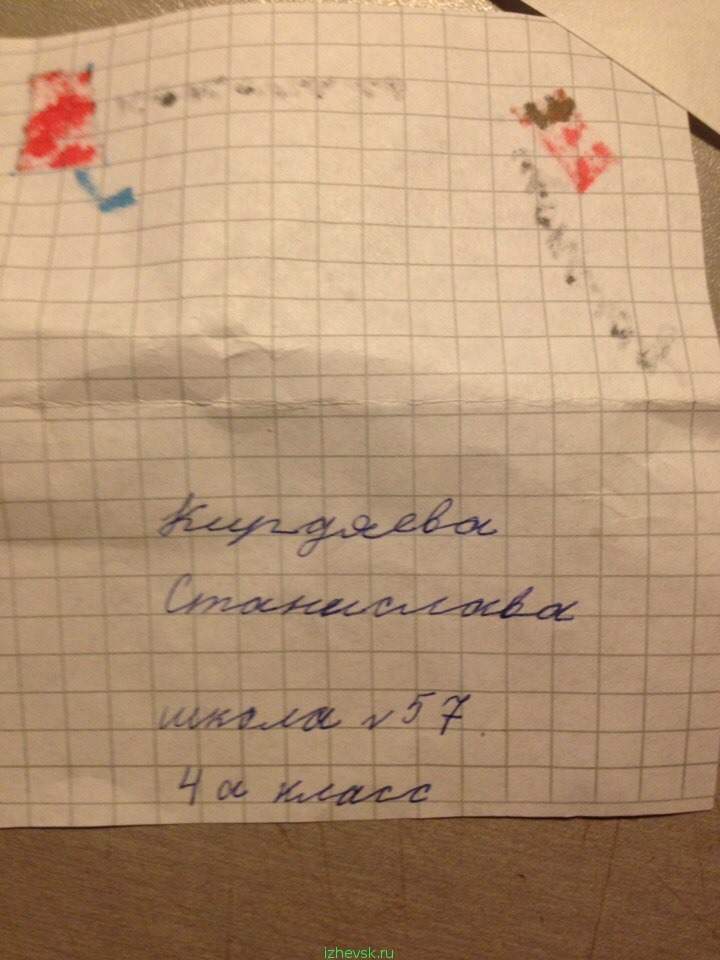 Кирдяева
Станислава
школа № 57
4 а класс
izhevsk.ru